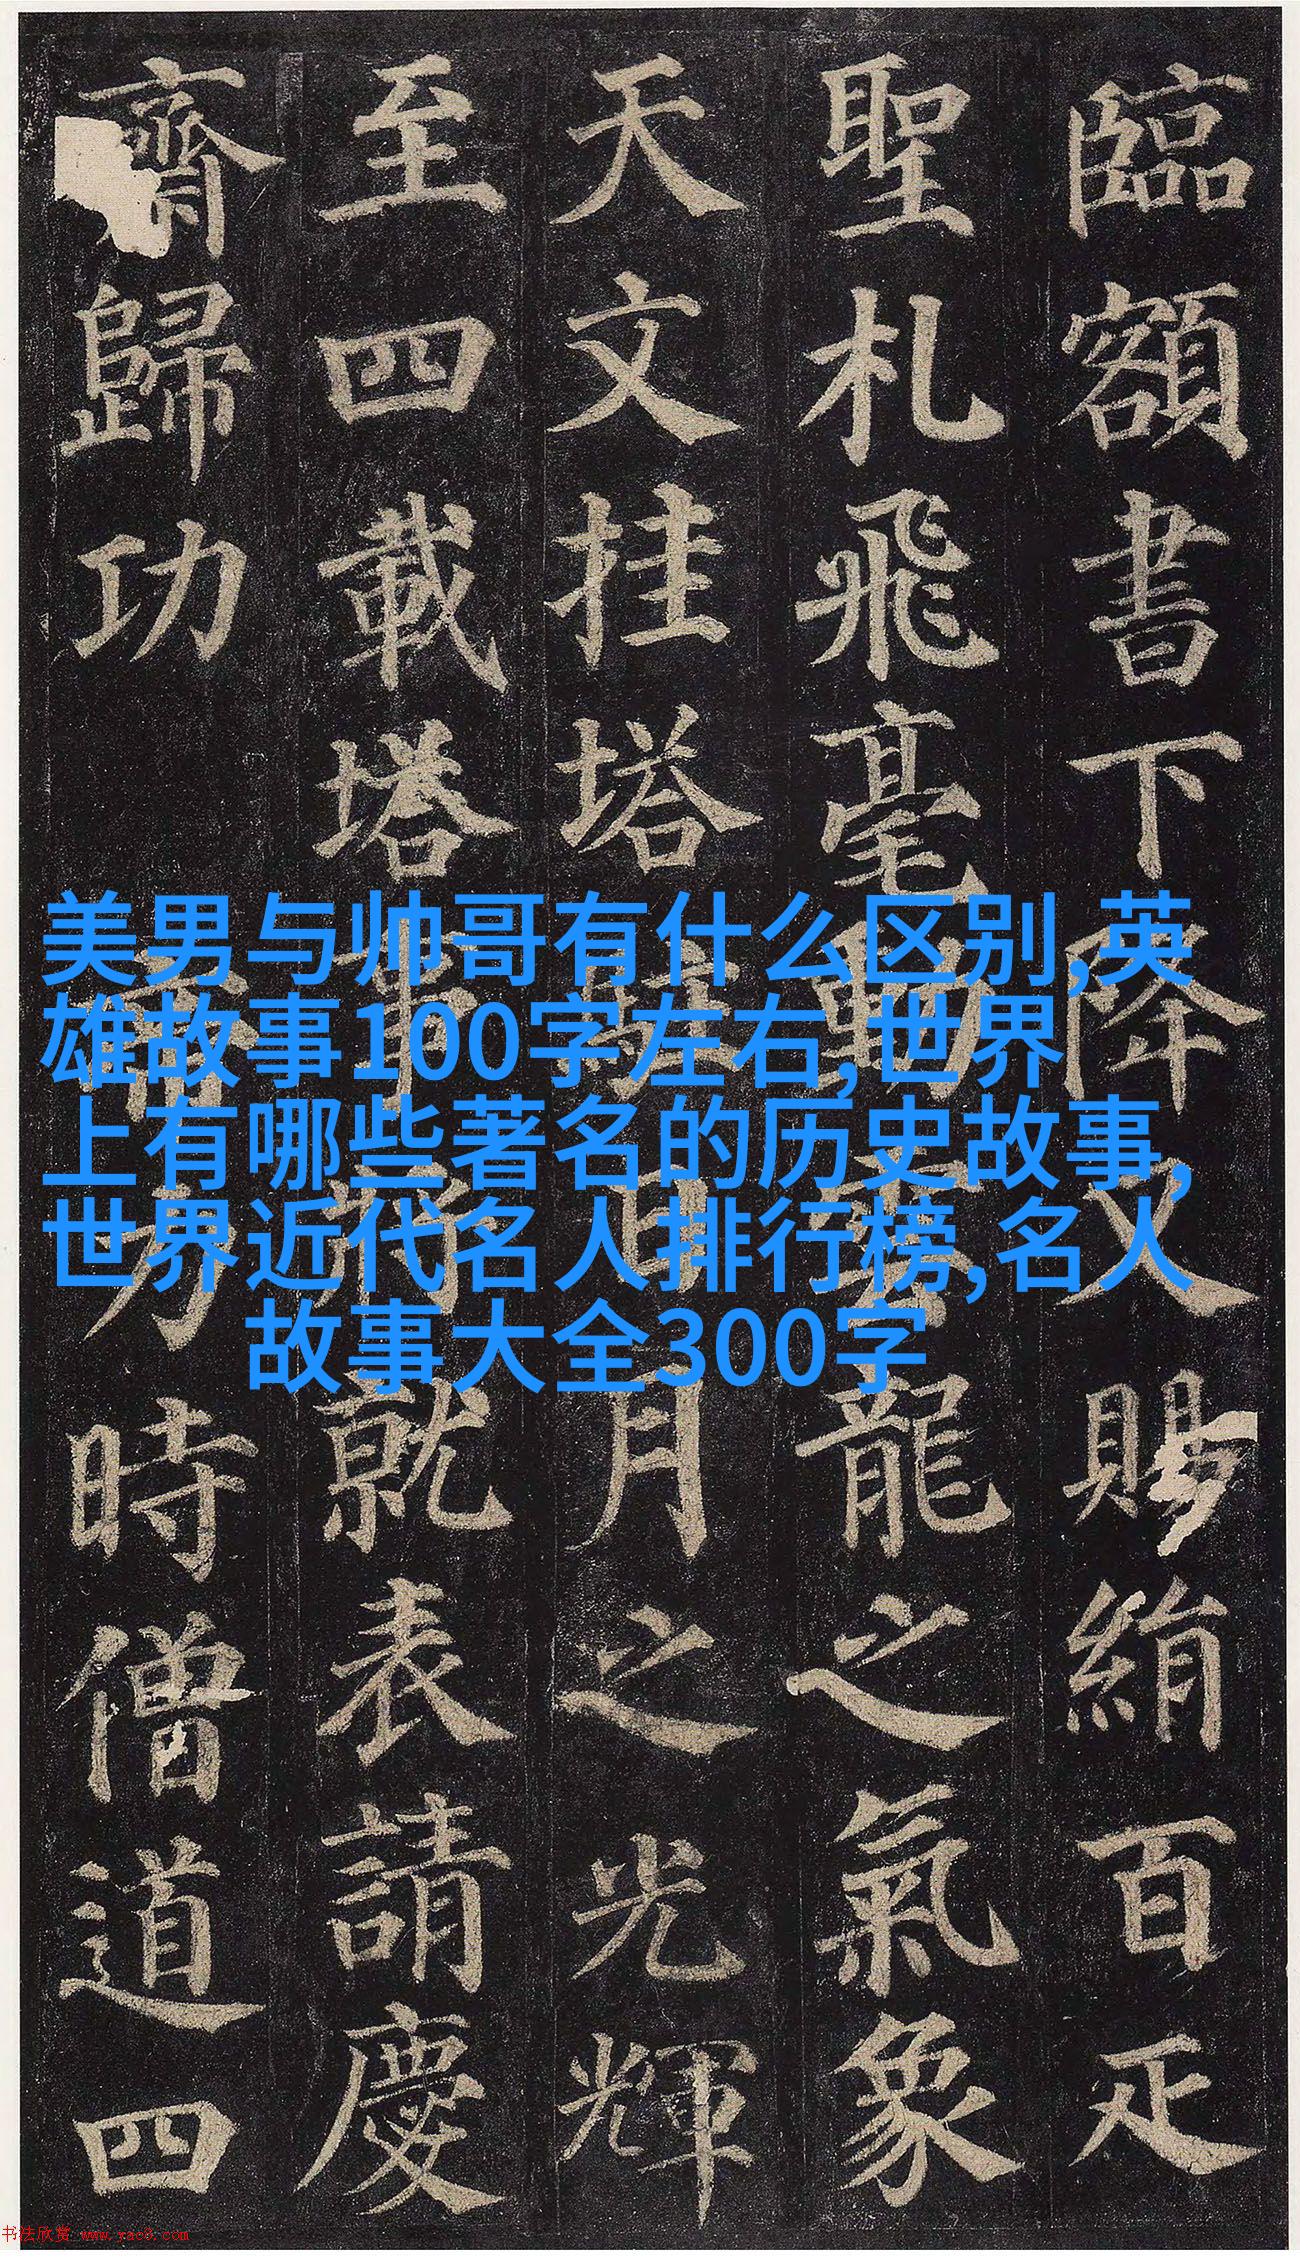 臨額書下降又賜絹百疋
聖札飛毫動雲龍之氣象
天文挂塔駐日月之光輝
至四載塔事將就表請慶
齋歸功帝力時僧道四
美男与帅哥有什么区别,英
雄故事100字左右,世界
上有哪些著名的历史故事,
世界近代名人排行榜,名人
故事大全300字
书法欣赏 www.yac8.com